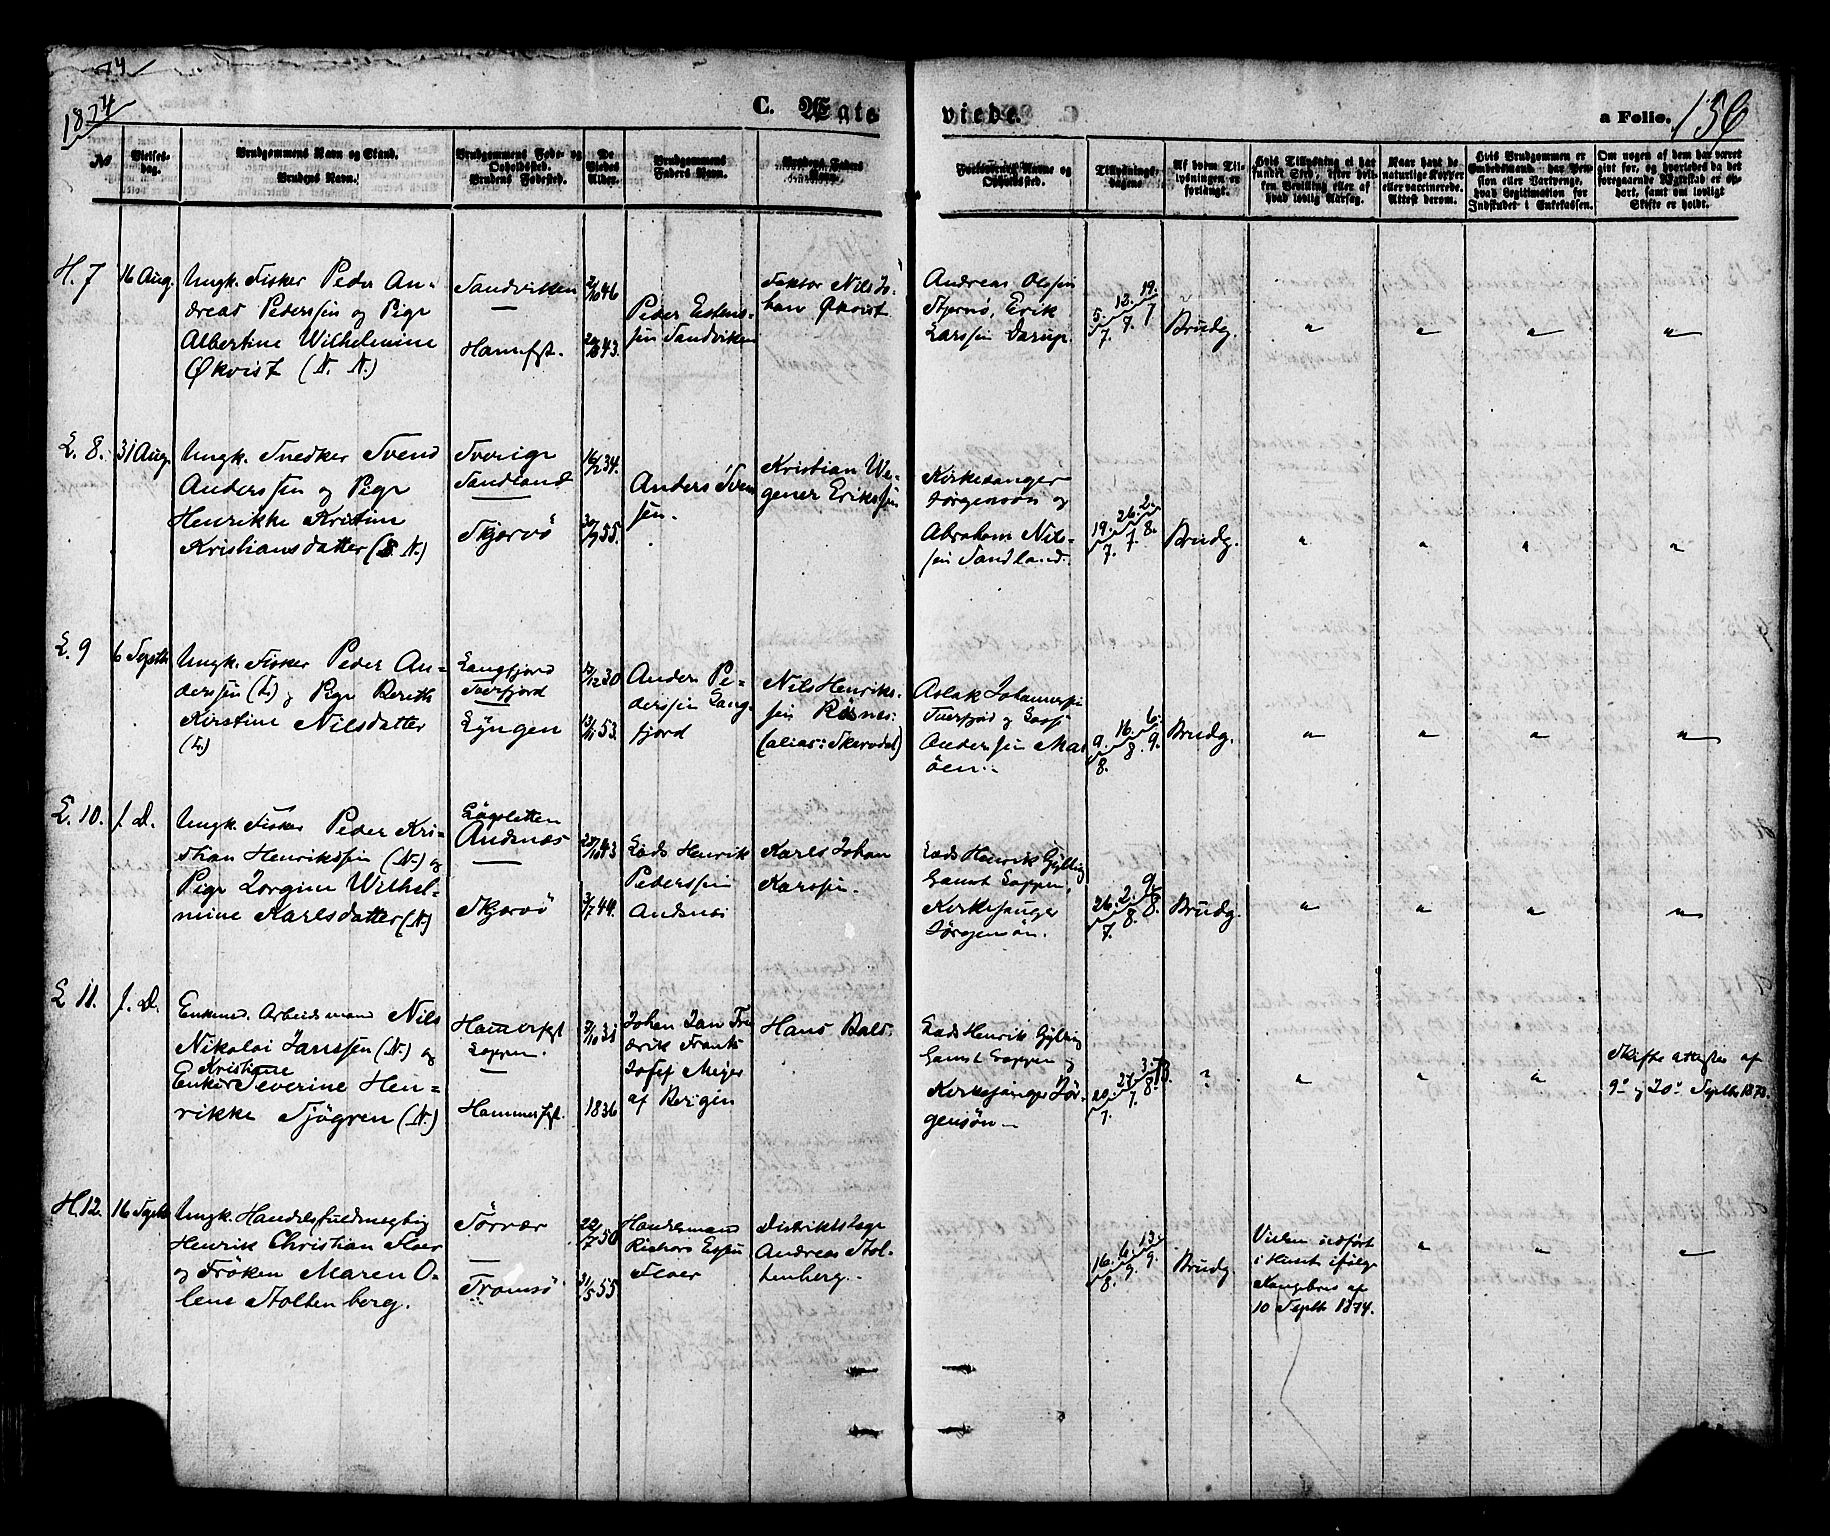 1874
C. Ægte
viede.
a Folio. 136
No
Vielses-
dag.
Brudgommens Navn og Stand.
Brudens Navn.
Brudgommens Føde- og
Opholdssted.
Brudens Fødested.
De
Viedes
Alder.
Brudgommens
Faders Navn.
Brudens Faders
Navn.
Forlovernes Navne og
Opholdssted.
Tillysnings-
dagene
Af hvem Til-
lysningen er
forlangt.
Hvis Tillysning ei har
fundet Sted, efter hvil-
ken Bevilling eller af
hvad lovlig Aarsag.
Naar havt de
naturlige Kopper
eller vaccinerede.
Attest derom.
Hvis Brudgommen er
Embedsmand, har Pen-
sion eller Vartpenge,
hvad Legitimation for
Indskudet i Enkekassen.
Om nogen af dem har været
gift før, og hvorledes da det
foregaaende Ægteskab er op-
hørt, samt om lovligt
Skifte er holdt.
H. 7
16 Aug.
Ungk. Fisker Peder An-
dreas Pederssen og Pige
Albertine Wilhelmine
Økvist (N. N.)
Sandviken
Hammfst.
2/10 46
43.
Peder Estens-
sen Sandviken
Faktor Nils Jo-
han Økvist
Andreas Olssen
Stjernö, Erik
Larssen
5/7. 12/7. 19/7
Brudg.
" " " "
L. 8.
31 Aug.
Ungk. Snedker Svend
Anderssen og Pige
Henrikke Kristine
Kristiansdatter ( N.)
Sverige
Sandland
Skjervö
16/2 34.
30/9 55.
Anders Sven-
sen.
Kristian We-
gener Erikssen
Kirkesanger
Jörgensön og
Abraham Nils-
sen Sandland.
19/7. 26/7. 2/8.
Brudg.
" " " "
L. 9
6 Septb
Ungk. Fisker Peder An-
derssen (L) og Pige Berith
Kirstine Nilsdatter
(L)
Langfjord
Tverfjord
Lyngen
17/12 30
13/1 53.
Anders Pe-
derssen Lang-
fjord
Nils Henriks-
sen Rörnes.
(alias: Skervdal)
Aslak Johannessen
Tverfjord og
Anderssen Mar-
öen.
9/8. 16/8. 6/9.
Brudg.
" " " "
L. 10.
s. D.
Ungk. Fisker Peder Kri-
stian Henrikssen (N.) og
Pige Jorgine Wilhel-
mine Karlsdatter (N)
Lögsletten
Andsnæs
Skjervö
43
3/7 44.
Lads Henrik
Pederssen
Andsnæs
Karls Johan
Karssen.
Lads Henrik Gylling
Gamst Loppen,
Kirkesanger
Jörgensön.
26/7. 2/8. 9/8.
Brudg.
" " " "
L 11.
s. D.
Enkem. Arbeidsmand Nils
Nikolai Janssen (N.) og
Kristiane
Enke Severine Hen-
rikke Sjögren (N.)
Hammerfest
Loppen.
Hammerfst.
3/10 31
1836
Johan Jan Fre-
derik Frants
Josef Meyer
af Bergen
Hans Bals.
Lads Henrik Gylling
Gamst Loppen og
Kirkesanger Jör-
gensön
"
" " "
Skifte attester af
9de og 20de Septb 1873.
H. 12.
16 Septb
Ungk. Handelsfuldmægtig
Henrik Christian Floer
og Fröken Maren O-
lene Stoltenberg.
Sörvær
Tromsö
22/7 50
31/5 55
Handelsmand
Richars
Floer
Distriktslæge
Andreas Stol-
tenberg.
16/8. 6/9. 13/9.
Brudg.
Vielsen udfört
i Huset ifölge
Kongebrev af
10 Septb 1874.
" " "